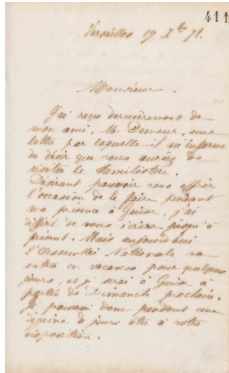 411
Versailles 19 Xbre 71.
Monsieur,
J'ai reçu dernièrement de
mon ami, M. Deneur, une
lettre par laquelle il m'informe
du désir que vous auriez de
visiter le Familistère.
Désirant pouvoir vous offrir
l'occasion de le faire pendant
ma présence à Guise, j'ai
différé de vous écrire jusqu'à
présent. Mais aujourd'hui
l'Assemblée Nationale va
entrer en vacances pour quelques
jours, et je serai à Guise à
partir de Dimanche prochain.
Je pourrai donc pendant une
dizaine de jours être à votre
disposition.